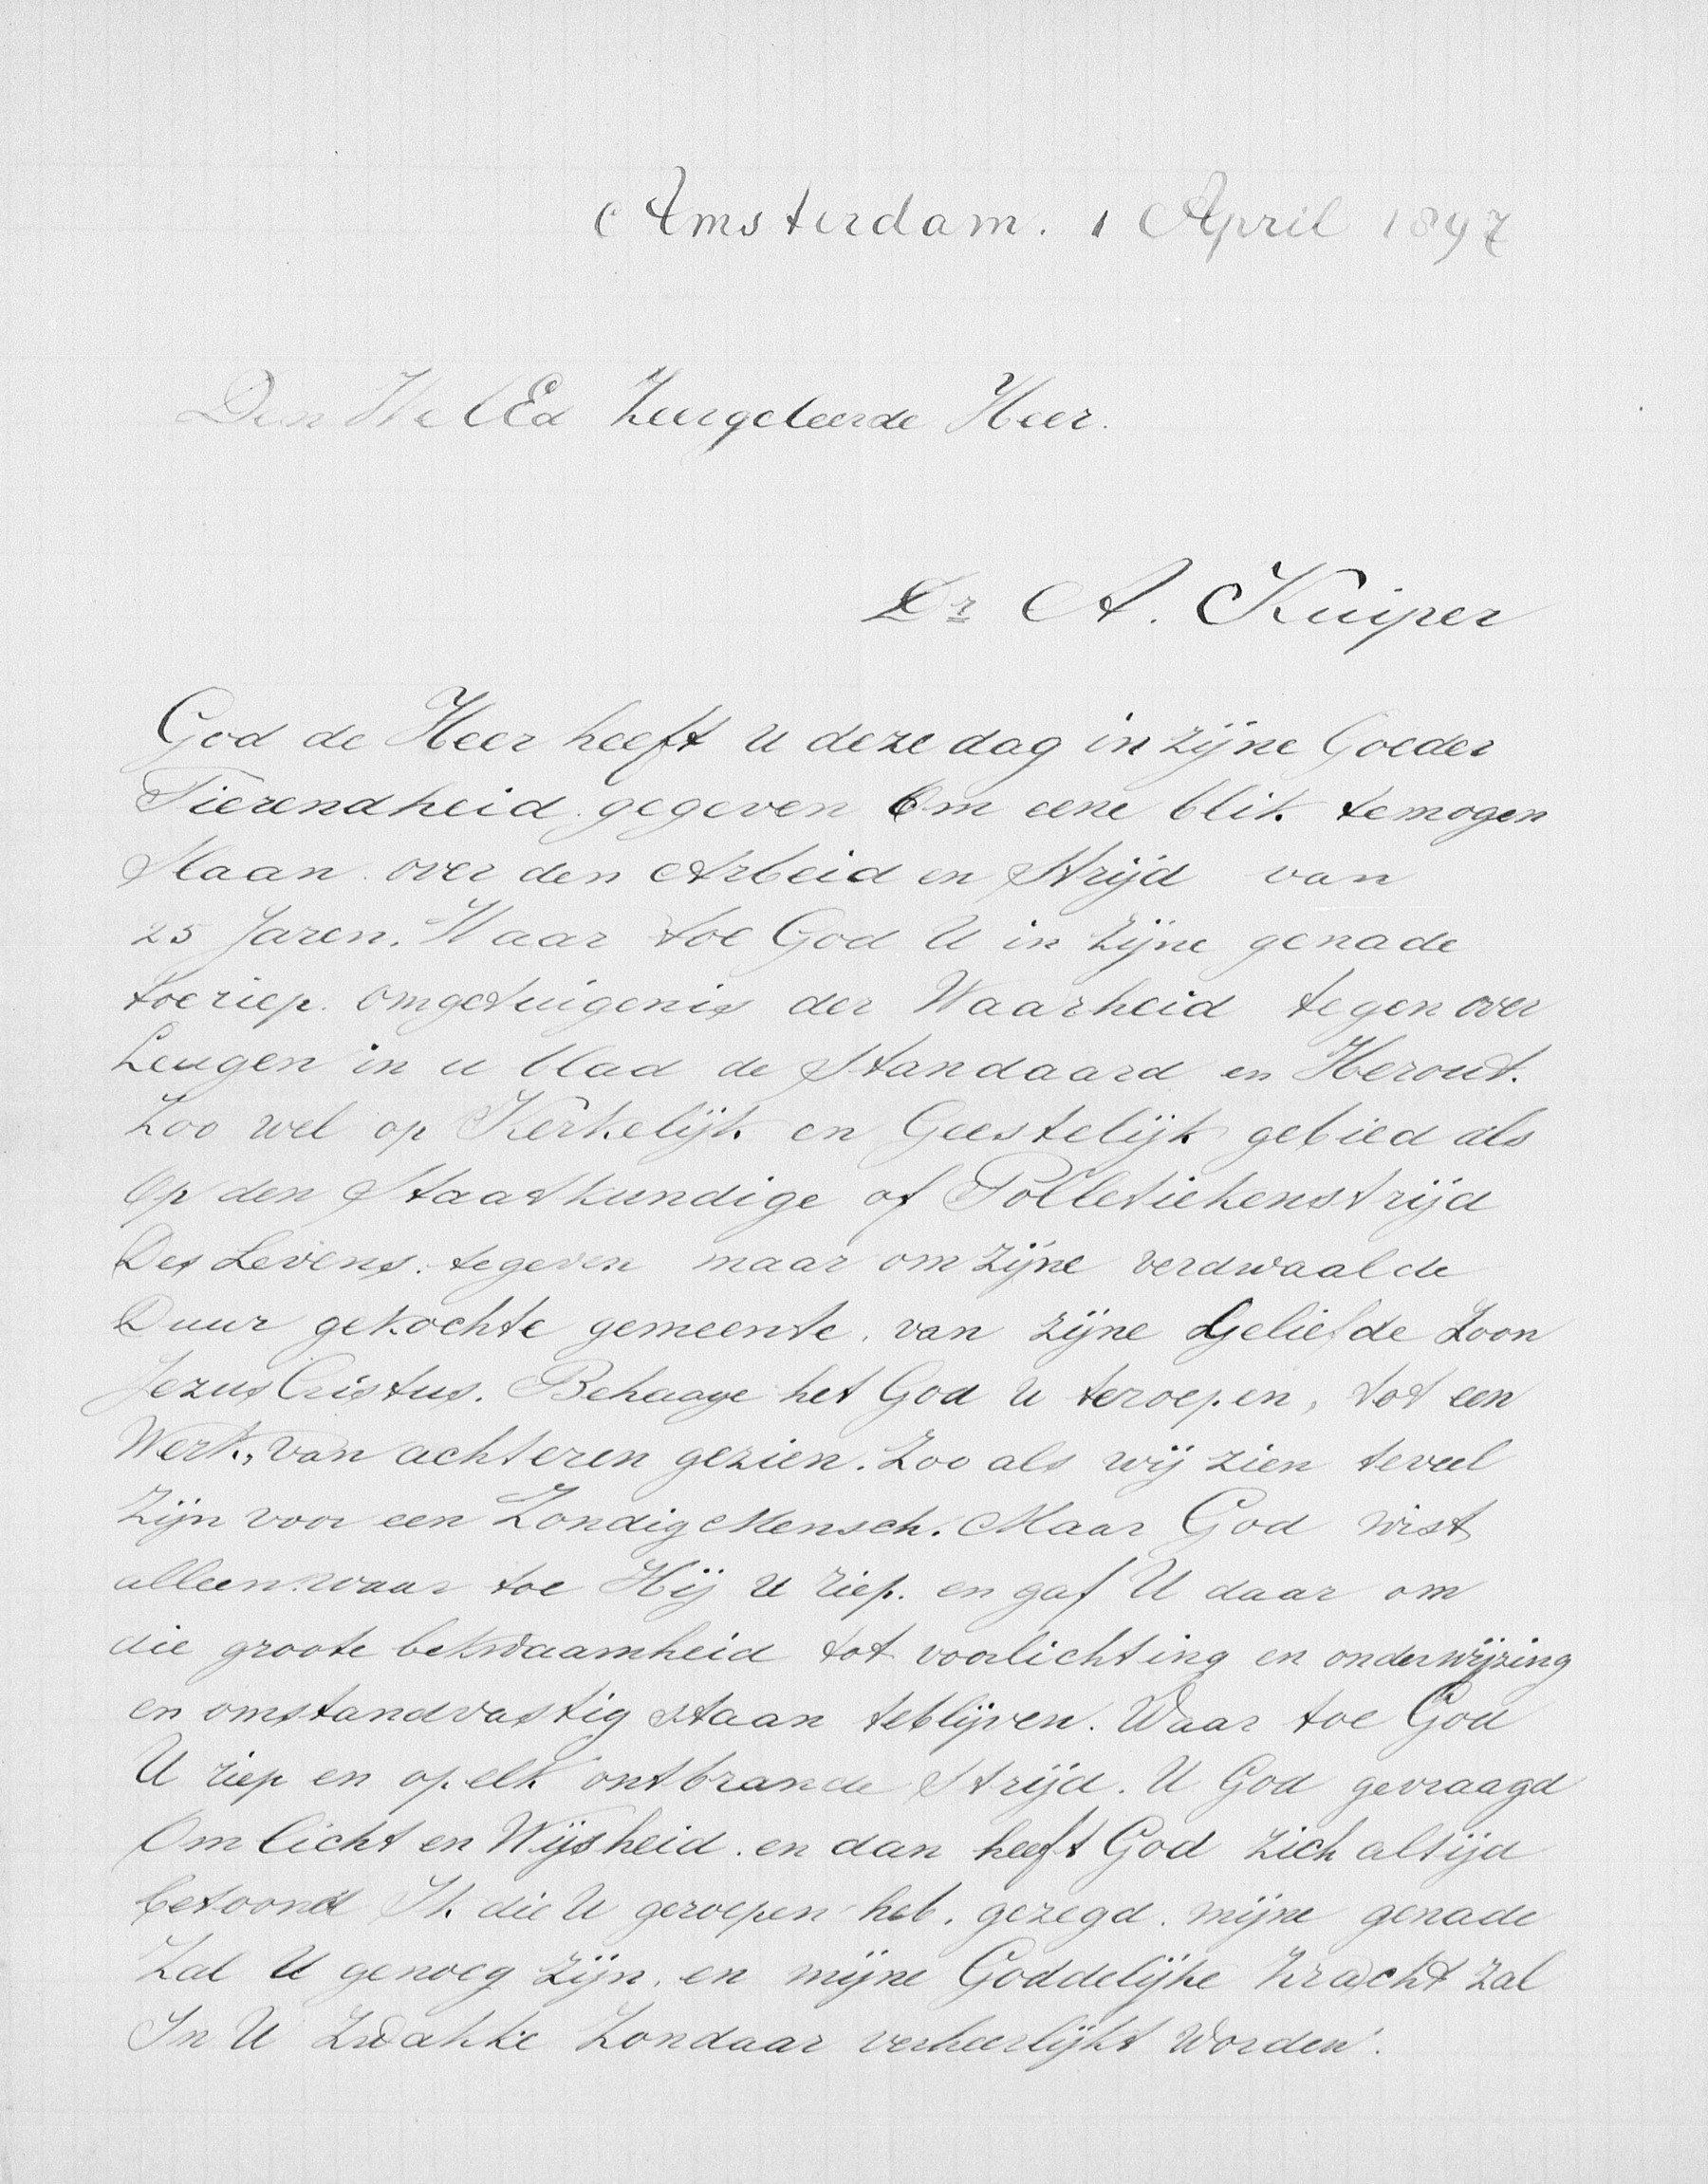 Amsterdam. 1 April 1897
Den WelEd Zeergeleerde Heer.
Dr A. Kuiper
God de Heer heeft u deze dag in zijne Goeder
Tierendheid gegeven Om eene blik temogen
Slaan over den Arbeid en Strijd van
25 Jaren. Waar toe God U in zijne genade
toeriep. omgetuigenis der Waarheid tegen over
Leugen in u blad de Standaard en Herout.
Zoo wel op Kerkelijk en Geestelijk gebied als
Op den Staatkundige of Polletiekenstrijd
Des Levens. tegeven maar om zijne verdwaalde
Duur gekochte gemeente. van zijne Geliefde Zoon
Jezus Cristus. Behaage het God u teroepen, tot een
Werk, van achteren gezien. Zoo als wij zien teveel
Zijn voor een Zondig Mensch. Maar God wist
alleen waar toe Hij u riep. en gaf U daar om
die groote bekwaamheid tot voorlichting en onderwijzing
en omstandvastig staan teblijven. Waar toe God
U riep en op elk ontbrande Strijd. U God gevraagd
Om licht en Wijsheid. en dan heeft God zich altijd
betoond Ik die U geroepen heb. gezegd. mijne genade
Zal U genoeg zijn. en mijne Goddelijke kracht zal
In U Zwakke Zondaar verheerlijkt Worden.